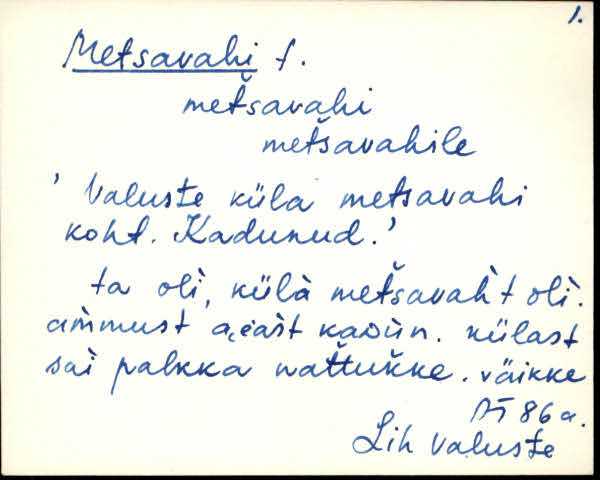 1.
Metsavahi t.
metšavahi
metšavahile
' Valuste küla metsavahi
koht. Kadunud.'
ta olì, külà metšavaht olì.
ammust kaoùn. külast
sai palkka nattukke. väikke
86 a.
Lih Valuste